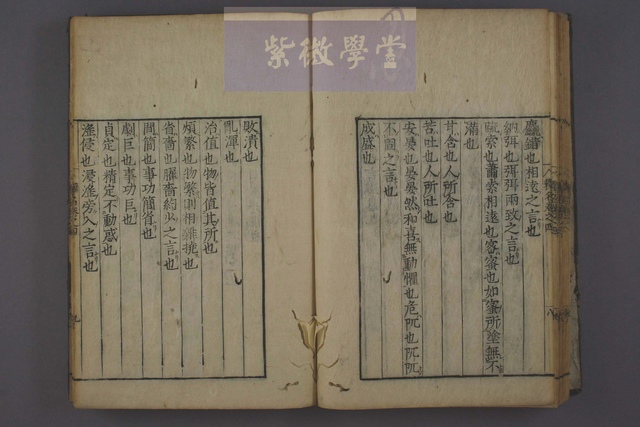 紫微學堂
麤錯也相遠之言也
納弭也弭弭兩致之言也
疏索也蕭索相遠也密蜜也如蜜所塗無不
滿也
甘含也人所含也
苦吐也人所吐也
安晏也晏晏然和喜無動懼也危阢也阢阢
不固之言也
成盛也
敗潰也
亂渾也
治值也物皆值其所也
煩繁也物繁則相雜撓也
省嗇也臞嗇約少之言也
間簡也事功簡省也
劇巨也事功巨也
貞定也精定不動惑也
淫侵也浸淫旁入之言也